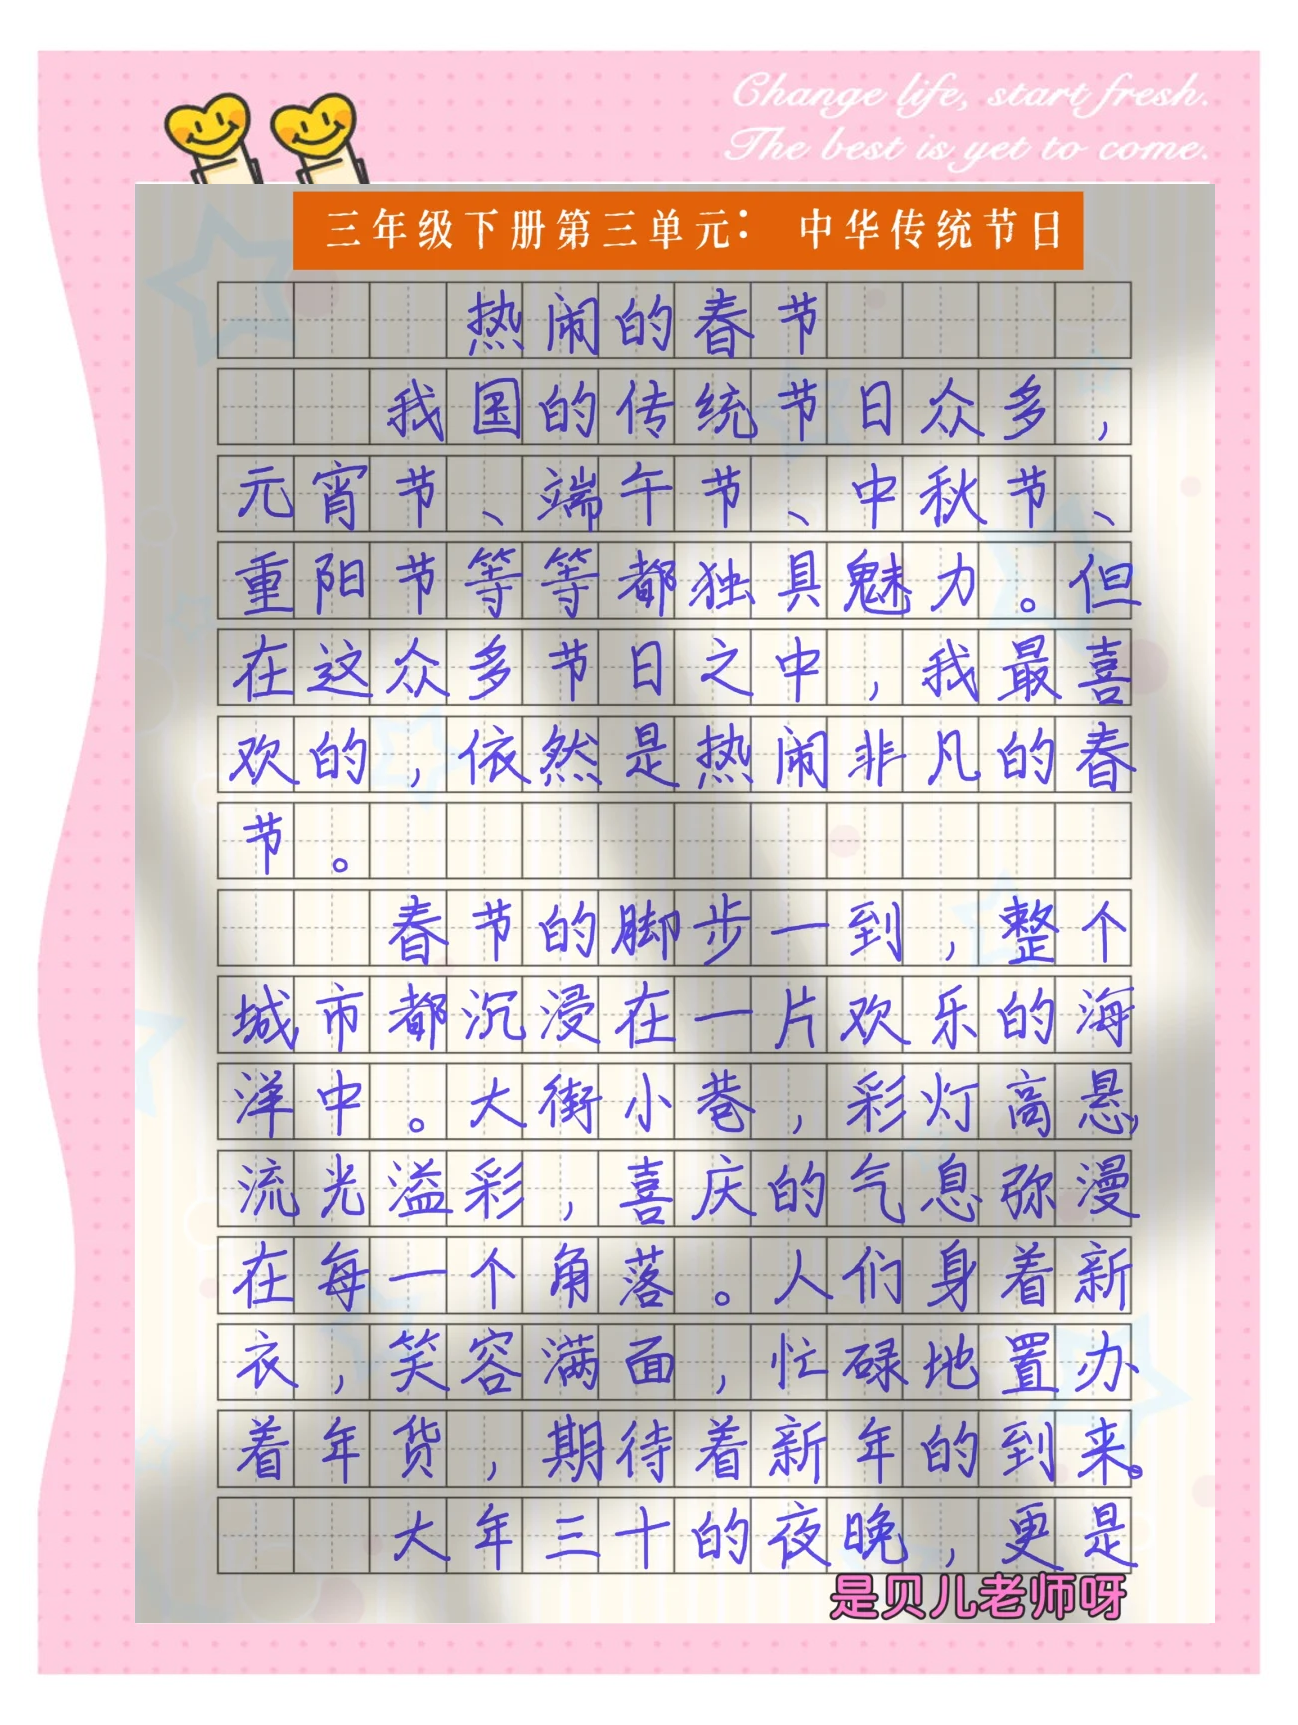 Change life, start fresh.
The best is yet to come.
三年级下册第三单元： 中华传统节日
热闹的春节
我国的传统节日众多，
元宵节、端午节、中秋节、
重阳节等等都独具魅力。但
在这众多节日之中，我最喜
欢的，依然是热闹非凡的春
节。
春节的脚步一到，整个
城市都沉浸在一片欢乐的海
洋中。大街小巷，彩灯高悬，
流光溢彩，喜庆的气息弥漫
在每一个角落。人们身着新
衣，笑容满面，忙碌地置办
着年货，期待着新年的到来。
大年三十的夜晚，更是
是贝儿老师呀